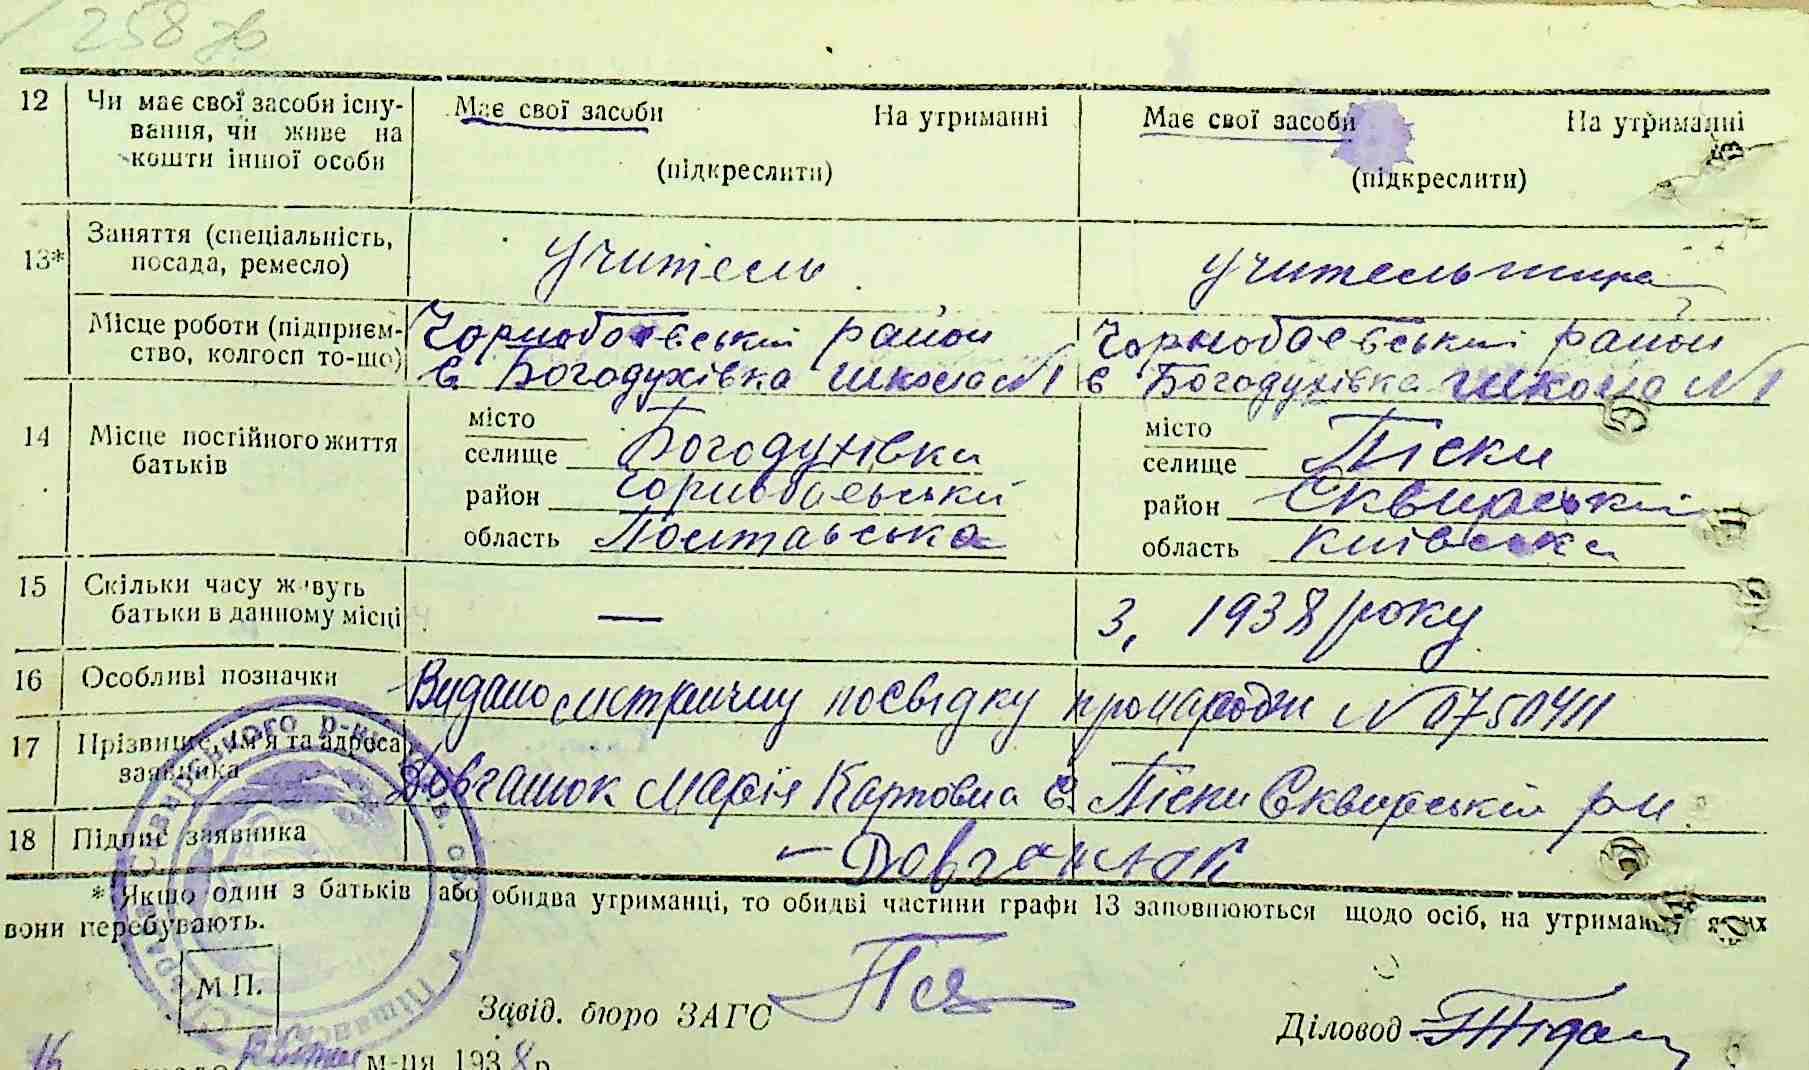 258 зв
12 Чи має свої засоби існу- Має свої засоби На утриманні Має свої засоби На утриманні
вання, чи живе на
кошти іншої особи (підкреслити) (підкреслити)
13* Заняття (спеціальність, учитель учителька
посада, ремесло)
Місце роботи (підприєм- Чорнобаєвський район Чорнобаєвський район
ство, колгосп то-що) с Богодухівка школа №1 с Богодухівка школа №1
14 Місце постійного життя місто місто
батьків селище Богодухівка селище Піски
район Чорнобаєвський район Сквирський
область Полтавська область Київська
15 Скільки часу живуть — З, 1938 року
батьки в данному місці
16 Особливі позначки Видано метричну посвідку про народж № 0750411
17 Прізвище, ім'я та адреса
заявника Довганюк Марія Карповна с Піски Сквирський р-н
18 Підпис заявника Довганюк
* Якщо один з батьків або обидва утриманці, то обидві частини графи 13 заповнюються щодо осіб, на утриманні яких
вони перебувають.
М П.
Завід. бюро ЗАГС
Діловод
16 м-ця 1938 р.